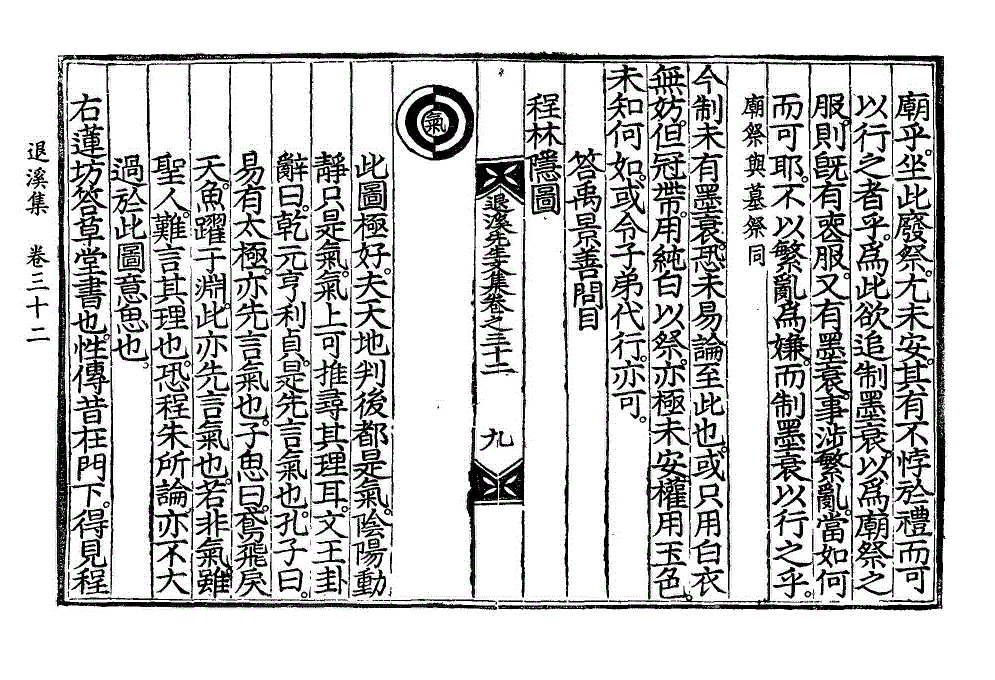 廟乎。坐此廢祭。尤未安。其有不悖於禮而可
以行之者乎。爲此欲追制墨衰。以爲廟祭之
服。則旣有喪服。又有墨衰。事涉繁亂。當如何
而可耶。不以繁亂爲嫌。而制墨衰以行之乎。
廟祭與墓祭同
今制未有墨衰。恐未易論至此也。或只用白衣
無妨。但冠帶。用純白以祭。亦極未安。權用玉色。
未知何如。或令子弟代行。亦可。
答禹景善問目
程林隱圖
退溪先生文集卷之三十二
九
氣
此圖極好。夫天地判後都是氣。陰陽動
靜。只是氣。氣上可推尋其理耳。文王卦
辭曰。乾元亨利貞。是先言氣也。孔子曰。
易有太極。亦先言氣也。子思曰。鳶飛戾
天。魚躍于淵。此亦先言氣也。若非氣。雖
聖人。難言其理也。恐程朱所論亦不大
過於此圖意思也。
右蓮坊答草堂書也。性傳昔在門下。得見程
退溪集 卷三十二